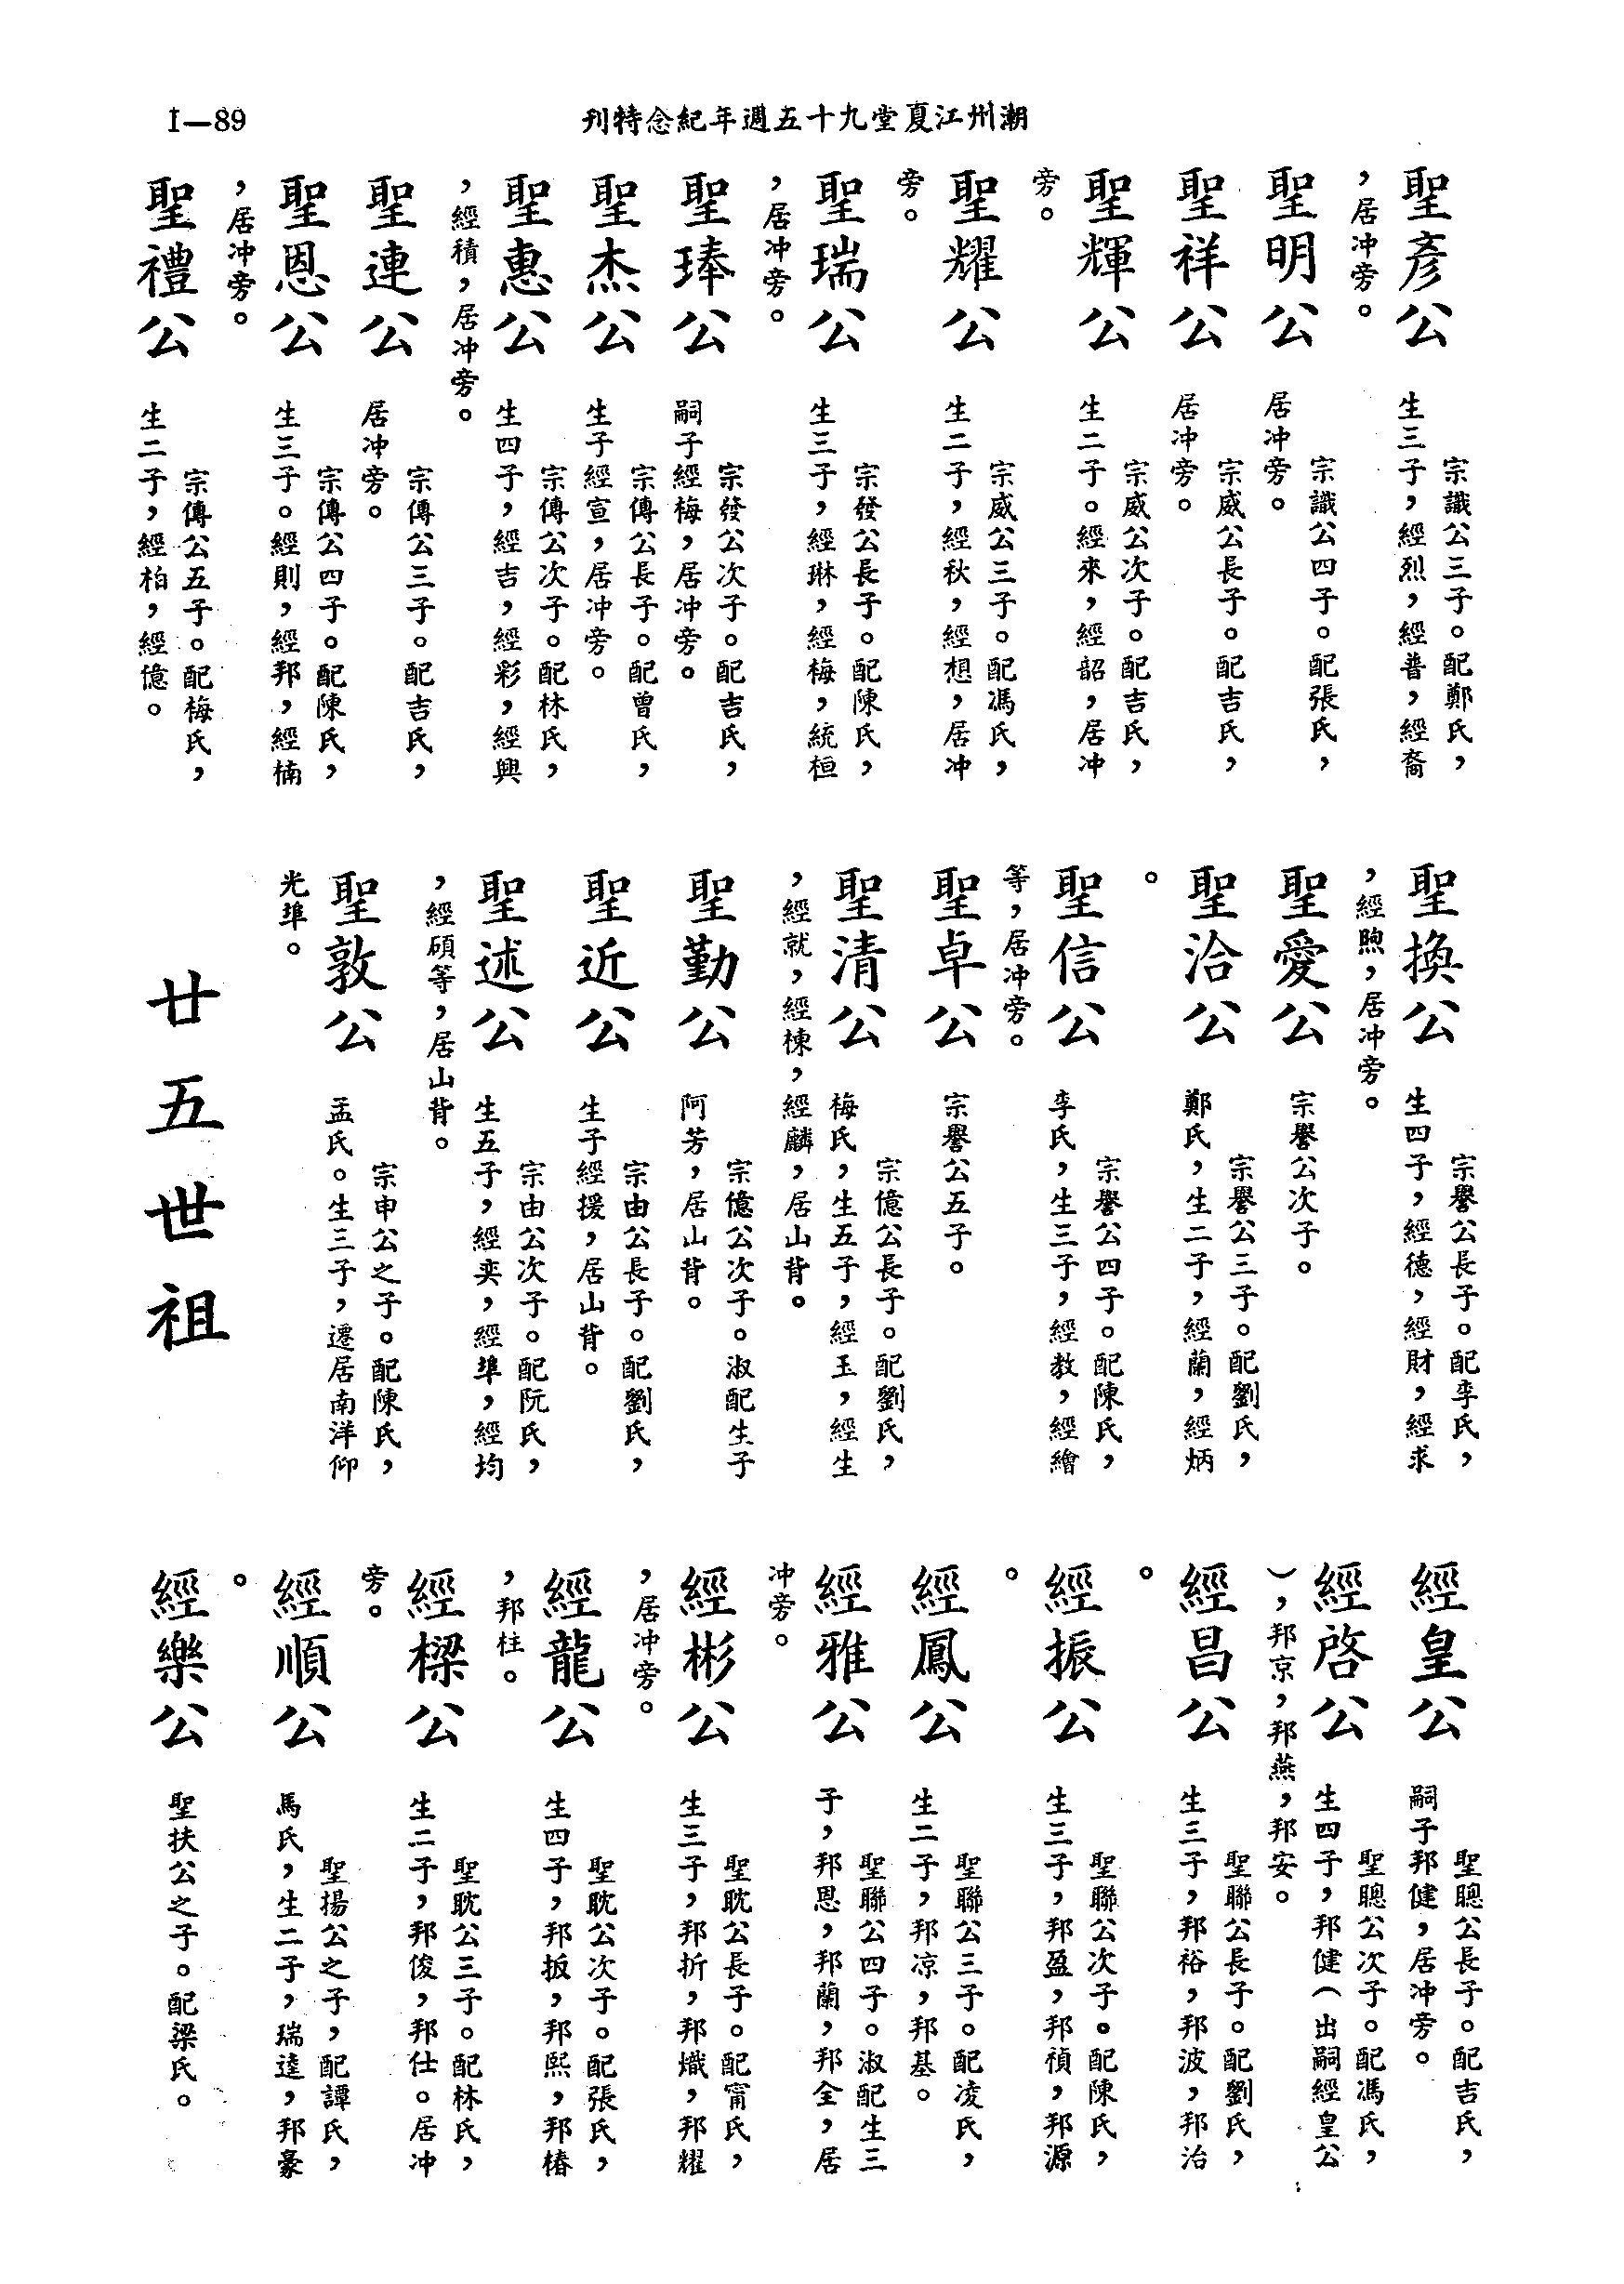 潮州江夏堂九十五週年紀念特刊
I—89
聖彥公
宗識公三子。配鄭氏，
生三子，經烈，經普，經裔
，居冲旁。
聖明公
宗識公四子。配張氏，
居冲旁。
聖祥公
宗威公長子。配吉氏，
居冲旁。
聖輝公
宗威公次子。配吉氏，
生二子。經來，經韶，居冲
旁。
聖耀公
宗威公三子。配馮氏，
生二子，經秋，經想，居冲
旁。
聖瑞公
宗發公長子。配陳氏，
生三子，經琳，經梅，統桓
，居冲旁。
聖琫公
宗發公次子。配吉氏，
嗣子經梅，居冲旁。
聖杰公
宗傳公長子。配曾氏，
生子經宣，居冲旁。
聖惠公
宗傳公次子。配林氏，
生四子，經吉，經彩，經興
，經積，居冲旁。
聖連公
宗傳公三子。配吉氏，
居冲旁。
聖恩公
宗傳公四子。配陳氏，
生三子。經則，經邦，經楠
，居冲旁。
聖禮公
宗傳公五子。配梅氏，
生二子，經柏，經億。
聖換公
宗譽公長子。配李氏，
生四子，經德，經財，經求
，經煦，居冲旁。
聖愛公
宗譽公次子。
聖洽公
宗譽公三子。配劉氏，
鄭氏，生二子，經蘭，經炳
。
聖信公
宗譽公四子。配陳氏，
李氏，生三子，經教，經繪
等，居冲旁。
聖卓公
宗譽公五子。
聖清公
宗億公長子。配劉氏，
梅氏，生五子，經玉，經生
，經就，經棟，經麟，居山背。
聖勤公
宗億公次子。淑配生子
阿芳，居山背。
聖近公
宗由公長子。配劉氏，
生子經援，居山背。
聖述公
宗由公次子。配阮氏，
生五子，經奕，經埠，經均
，經碩等，居山背。
聖敦公
宗申公之子。配陳氏，
孟氏。生三子，遷居南洋仰
光埠。
廿五世祖
經皇公
聖聰公長子。配吉氏，
嗣子邦健，居冲旁。
經啓公
聖聰公次子。配馮氏，
生四子，邦健（出嗣經皇公
），邦京，邦燕，邦安。
經昌公
聖聯公長子。配劉氏，
生三子，邦裕，邦波，邦治
。
經振公
聖聯公次子。配陳氏，
生三子，邦盈，邦禎，邦源
。
經鳳公
聖聯公三子。配凌氏，
生二子，邦凉，邦基。
經雅公
聖聯公四子。淑配生三
子，邦恩，邦蘭，邦全，居
冲旁。
經彬公
聖耽公長子。配甯氏，
生三子，邦折，邦熾，邦耀
，居冲旁。
經龍公
聖耽公次子。配張氏，
生四子，邦扳，邦熙，邦椿
，邦柱。
經樑公
聖耽公三子。配林氏，
生二子，邦俊，邦仕。居冲
旁。
經順公
聖揚公之子，配譚氏，
馬氏，生二子，瑞逵，邦豪
。
經樂公
聖扶公之子。配梁氏。